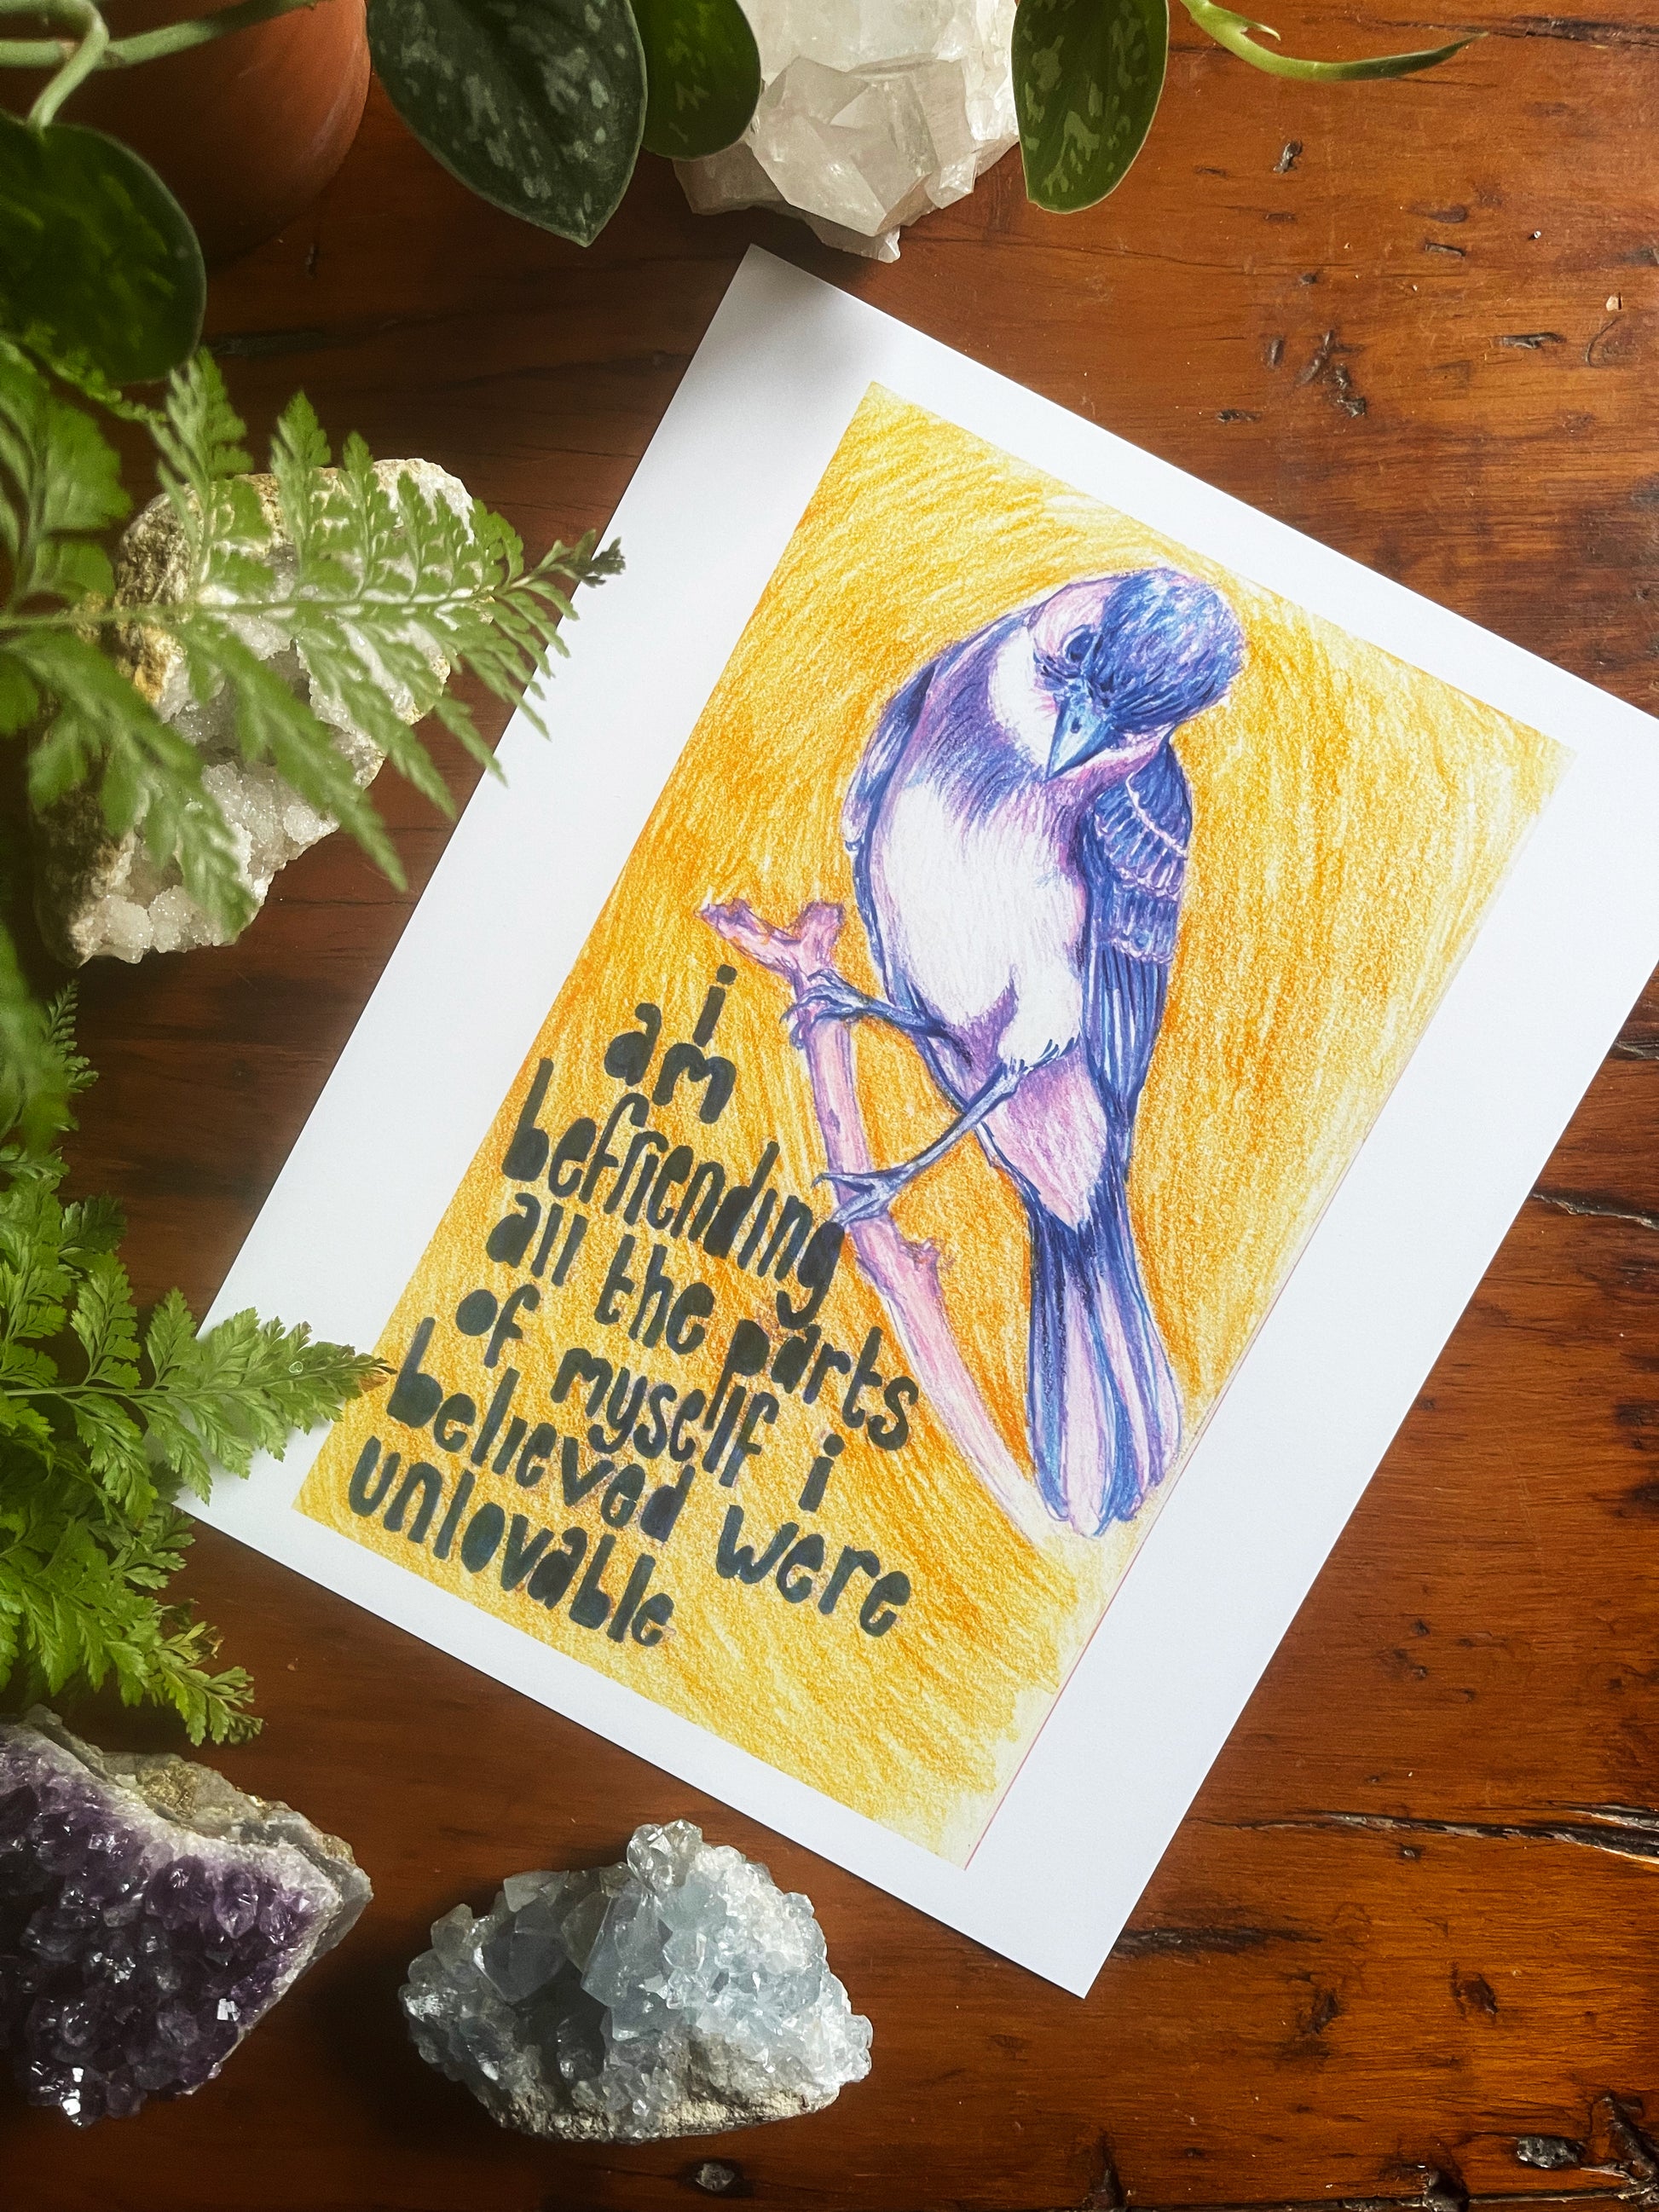 i
am
befriending
all the parts
of myself i
believed were
unlovable